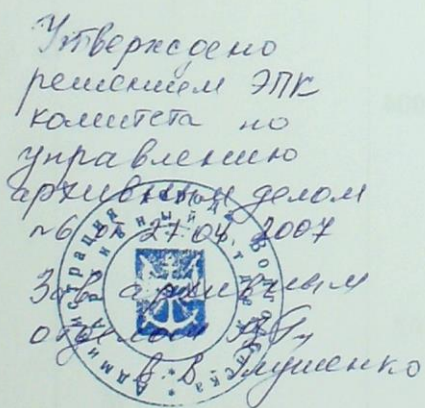 Утверждено
решением ЭПК
комитета по
управлению
архивным делом
№6 от 27 04 2007
Зав архивным
отделом